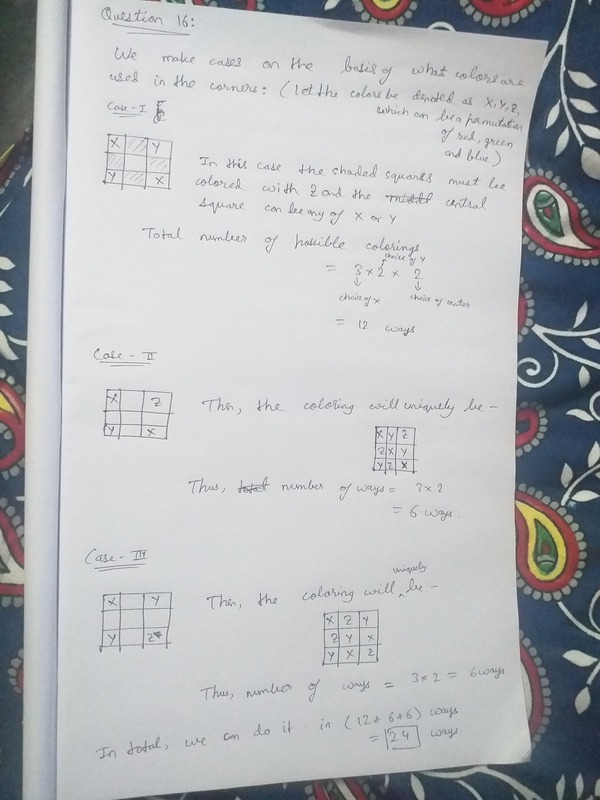 Question 16:
We make cases on the basis of what colors are
used in the corners: (Let the colors be denoted as X, Y, Z,
which can be a permutation
of red, green
and blue)
Case - I
X Y
Y X
In this case the shaded squares must be
colored with Z and the central
square can be any of X or Y
Total number of possible colorings
choice of Y
= 3 × 2 × 2
choice of X choice of center
= 12 ways
Case - II
X Z
Y X
Then, the coloring will uniquely be -
X Y Z
Z X Y
Y Z X
Thus, total number of ways = 3 × 2
= 6 ways.
Case - III
X Y
Y Z
uniquely
Then, the coloring will ^ be -
X Z Y
Z Y X
Y X Z
Thus, number of ways = 3 × 2 = 6 ways
In total, we can do it in (12 + 6 + 6) ways
= 24 ways